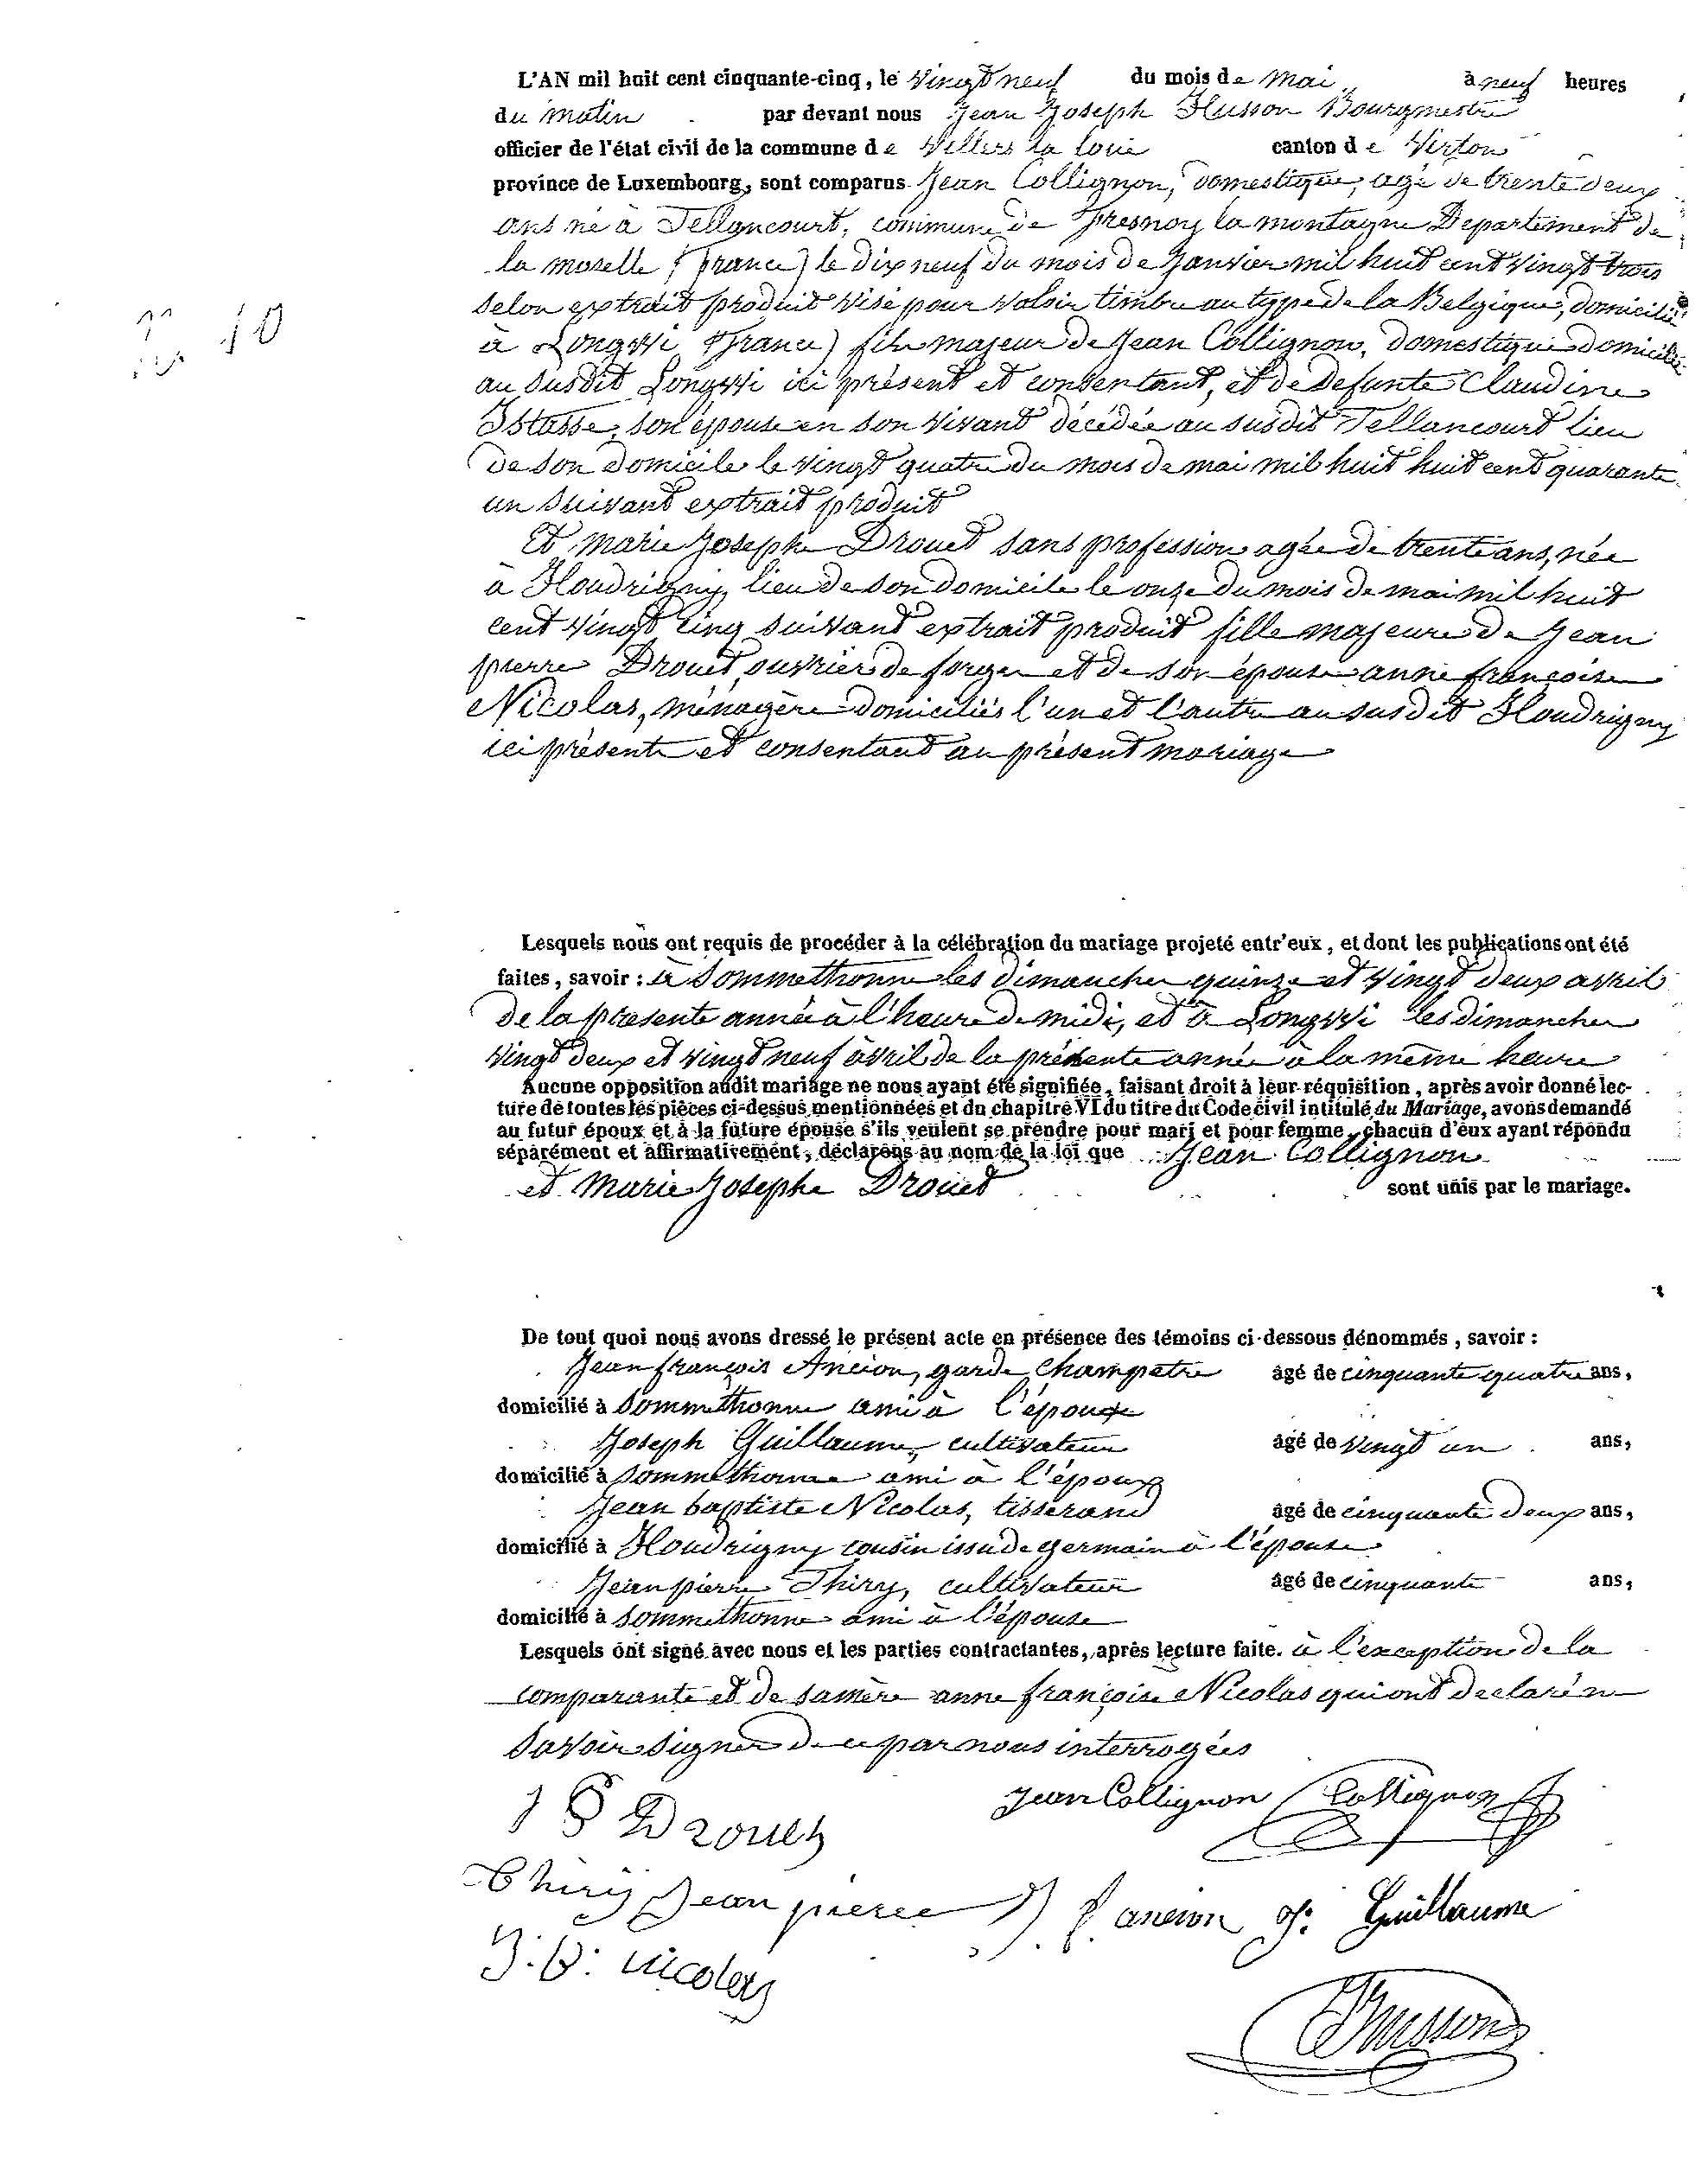 L'AN mil huit cent cinquante-cinq, le vingt neuf du mois de mai à neuf heures
du matin par devant nous Jean Joseph Husson Bourgmestre
officier de l'état civil de la commune de Villers la loue canton de Virton
province de Luxembourg, sont comparus Jean Collignon, domestique, agé de trente deux
ans né à Tellancourt, commune de Fresnoy la montagne Departement de
la moselle (France) le dix neuf du mois de Janvier mil huit cent vingt trois
selon extrait produit visé pour valoir timbre au type de la Belgique, domicilié
à Longwi (France) fils majeur de Jean Collignon, domestique domicilié
au susdit Longwi ici présent et consentant, et de defunte Claudine
Istasse, son épouse en son vivant décédée au susdit Tellancourt lieu
de son domicile le vingt quatre du mois de mai mil huit huit cent quarante
un suivant extrait produit
Et marie Josephe Drouet sans profession agée de trente ans, née
à Houdrigny, lieu de son domicile le onze du mois de mai mil huit
cent vingt cinq suivant extrait produit fille majeure de Jean
pierre Drouet, ouvrier de forges et de son épouse anne françoise
Nicolas, ménagère domiciliés l'un et l'autre au susdit Houdrigny
ici présents et consentant au présent mariage
N° 10
Lesquels nous ont requis de procéder à la célébration du mariage projeté entr'eux, et dont les publications ont été
faites, savoir : à Sommethonne les dimanches quinze et vingt deux avril
de la presente année à l'heure de midi, et à Longwi les dimanches
vingt deux et vingt neuf avril de la présente année à la même heure
Aucune opposition audit mariage ne nous ayant été signifiée, faisant droit à leur réquisition, après avoir donné lec-
ture de toutes les pièces ci-dessus mentionnées et du chapitre VI du titre du Code civil intitulé du Mariage, avons demandé
au futur époux et à la future épouse s'ils veulent se prendre pour mari et pour femme, chacun d'eux ayant répondu
séparément et affirmativement, déclarons au nom de la loi que Jean Collignon
et Marie Josephe Drouet sont unis par le mariage.
De tout quoi nous avons dressé le présent acte en présence des témoins ci-dessous dénommés, savoir :
Jean françois Ancion, garde champetre âgé de cinquante quatre ans,
domicilié à Sommethonne ami à l'époux
Joseph Guillaume, cultivateur âgé de vingt un ans,
domicilié à Sommethonne ami à l'époux
Jean baptiste Nicolas, tisserand âgé de cinquante deux ans,
domicilié à Houdrigny cousin issu de germain à l'épouse
Jean pierre Thiry, cultivateur âgé de cinquante ans,
domicilié à Sommethonne ami à l'épouse
Lesquels ont signé avec nous et les parties contractantes, après lecture faite. à l'exception de la
comparante et de sa mère anne françoise Nicolas qui ont declaré ne
savoir signer de ce par nous interrogées
J P Drouet Jean Collignon Collignon
Thiry Jean pierre J. f. ancion J. Guillaume
J. B. Nicolas
Husson